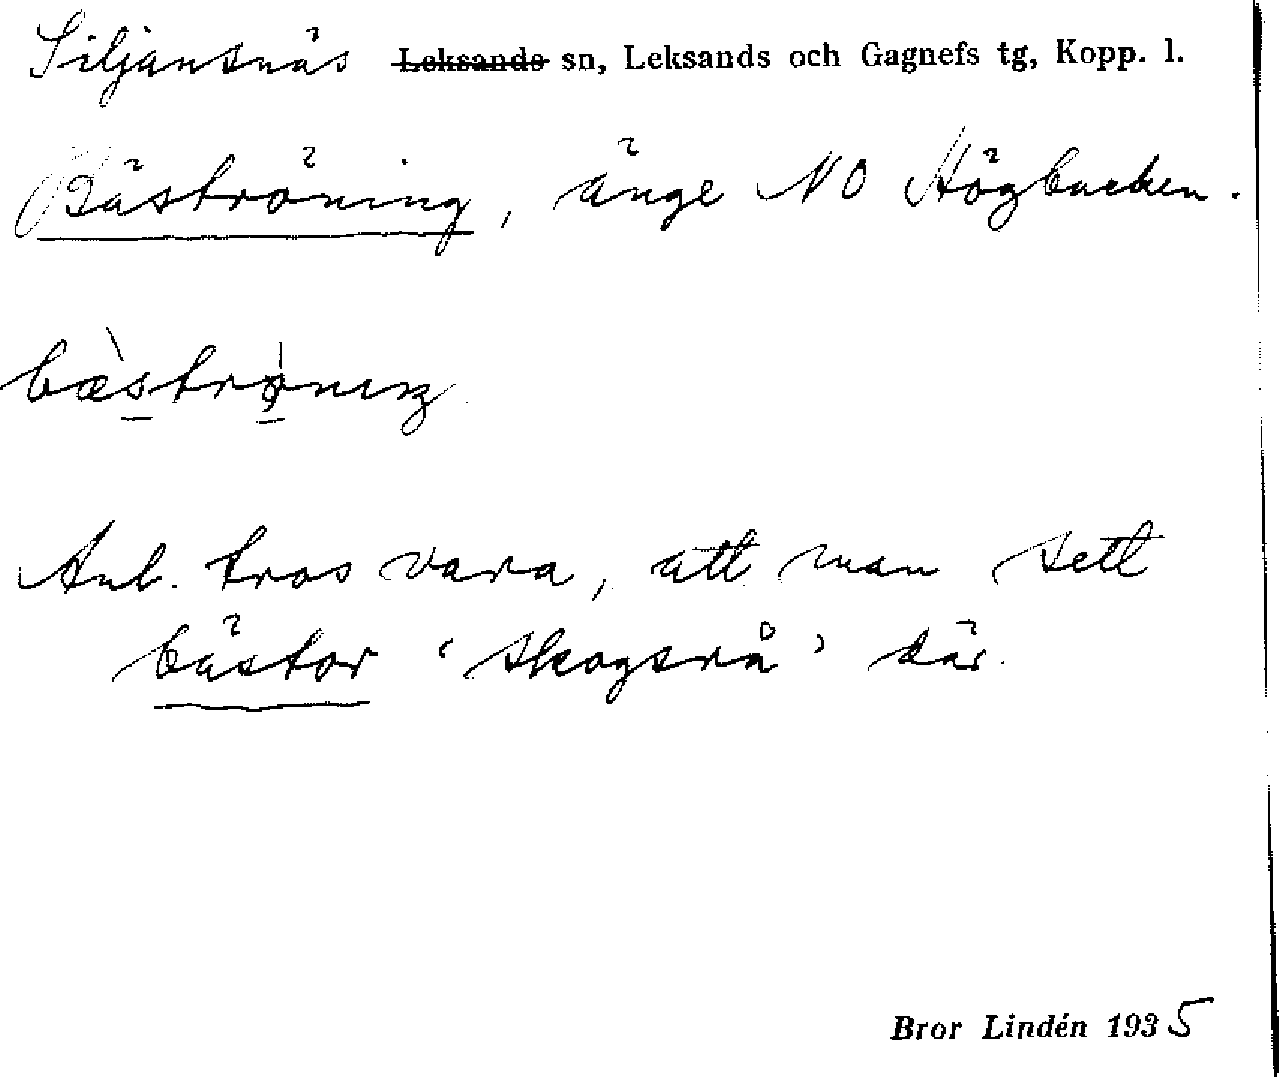 Siljansnäs ~~Leksands~~ sn, Leksands och Gagnefs tg, Kopp. l.
Bäströning, änge NO Högbacken.
bæ̀strø̀nıŋ
Anl. tros vara, att man sett
bästor 'skogsrå' där.
Bror Lindén 1935